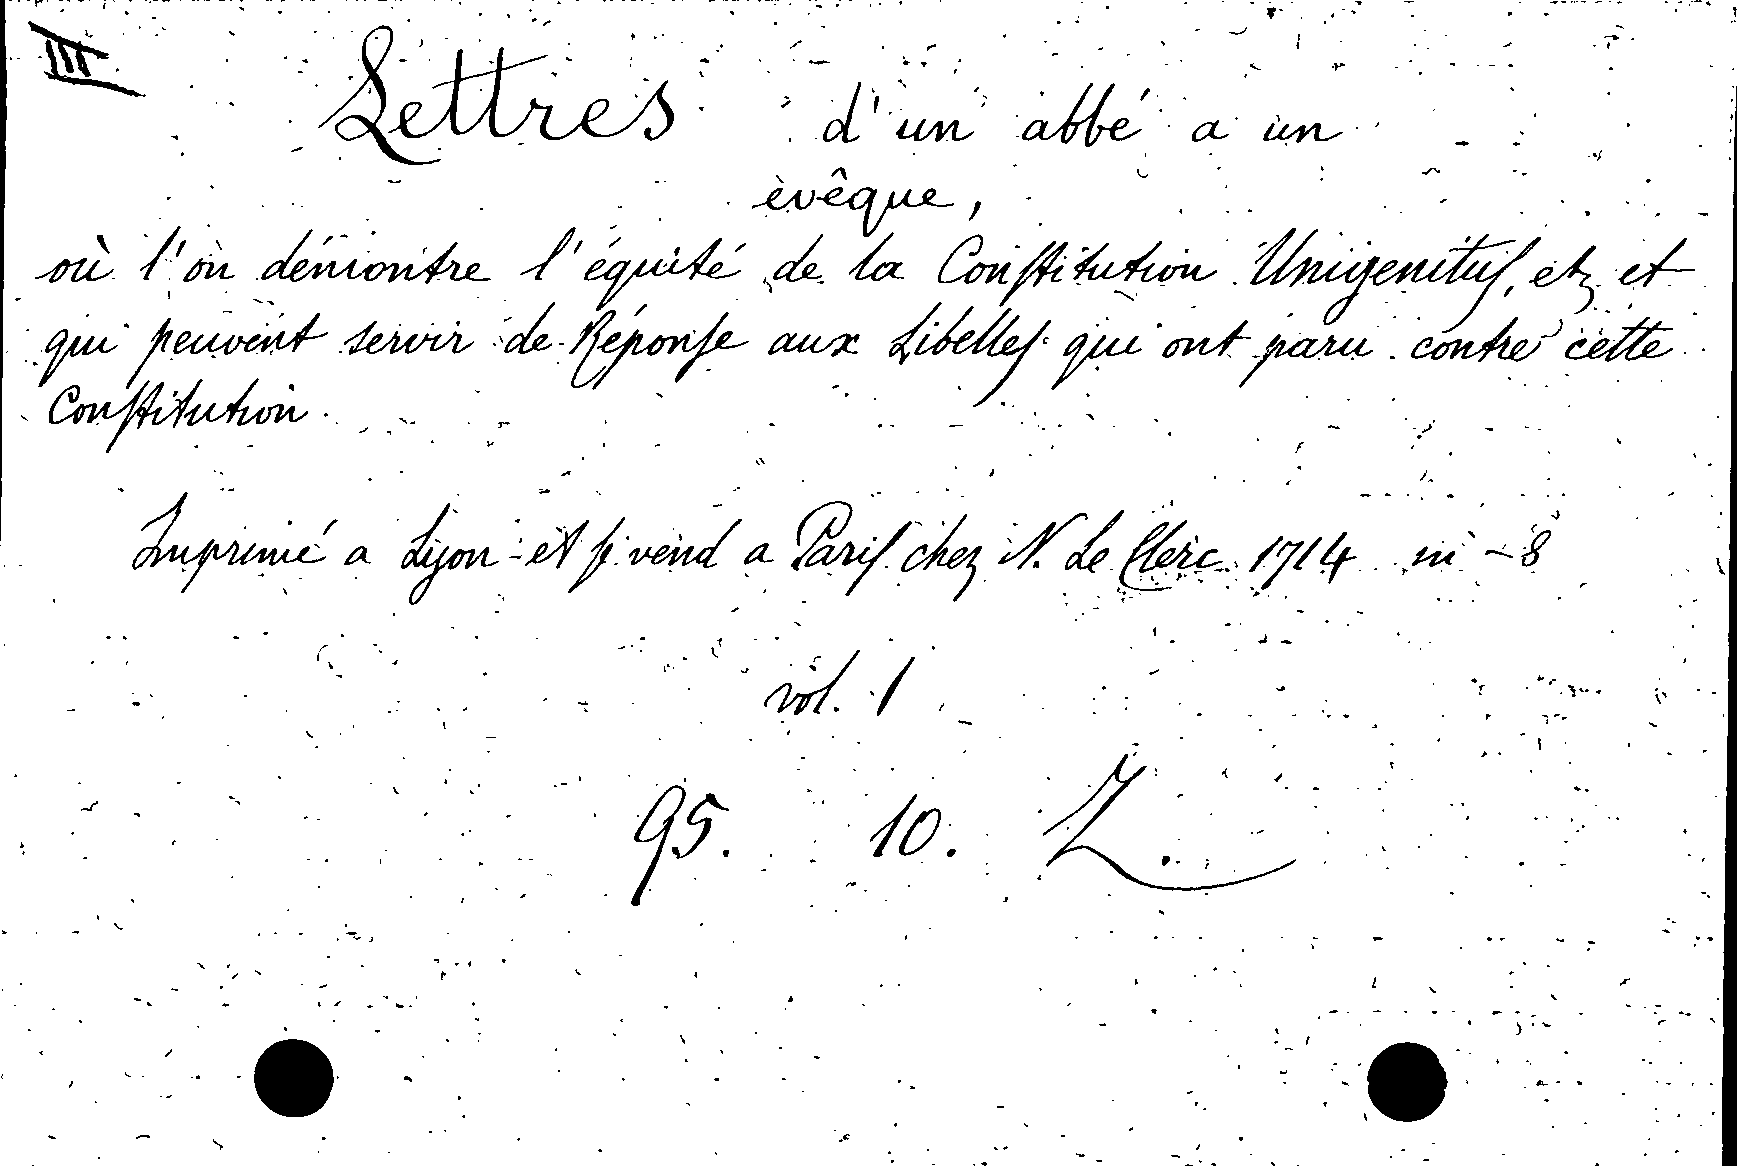 III
Lettres d'un abbé a un
èvêque,
où l'on démontre l'équité de la Conſtitution Unigenituſ, etz et
qui peuvent servir de Réponſe aux Libelleſ qui ont paru contre cette
Conſtitution.
Imprimé a Lyon et ſe vend a Pariſ chez N. Le Clerc 1714 in-8
vol. 1
95. 10. Z.